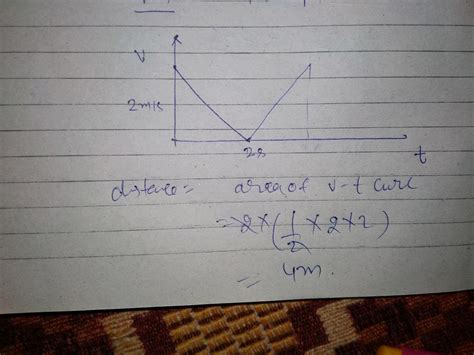 V
2m/s
2s
t
distance = area of v-t curve
= 2 × ( 1/2 × 2 × 2 )
= 4m.